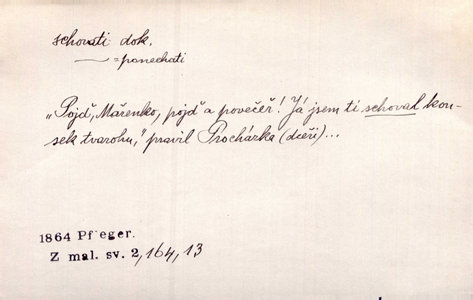 schovati dok.
= ponechati
„Pojď, Mářenko, pojď a povečeř! Já jsem ti schoval kou-
sek tvarohu,“ pravil Procházka (dceři)...
1864 Pf eger.
Z mal. sv. 2, 164, 13